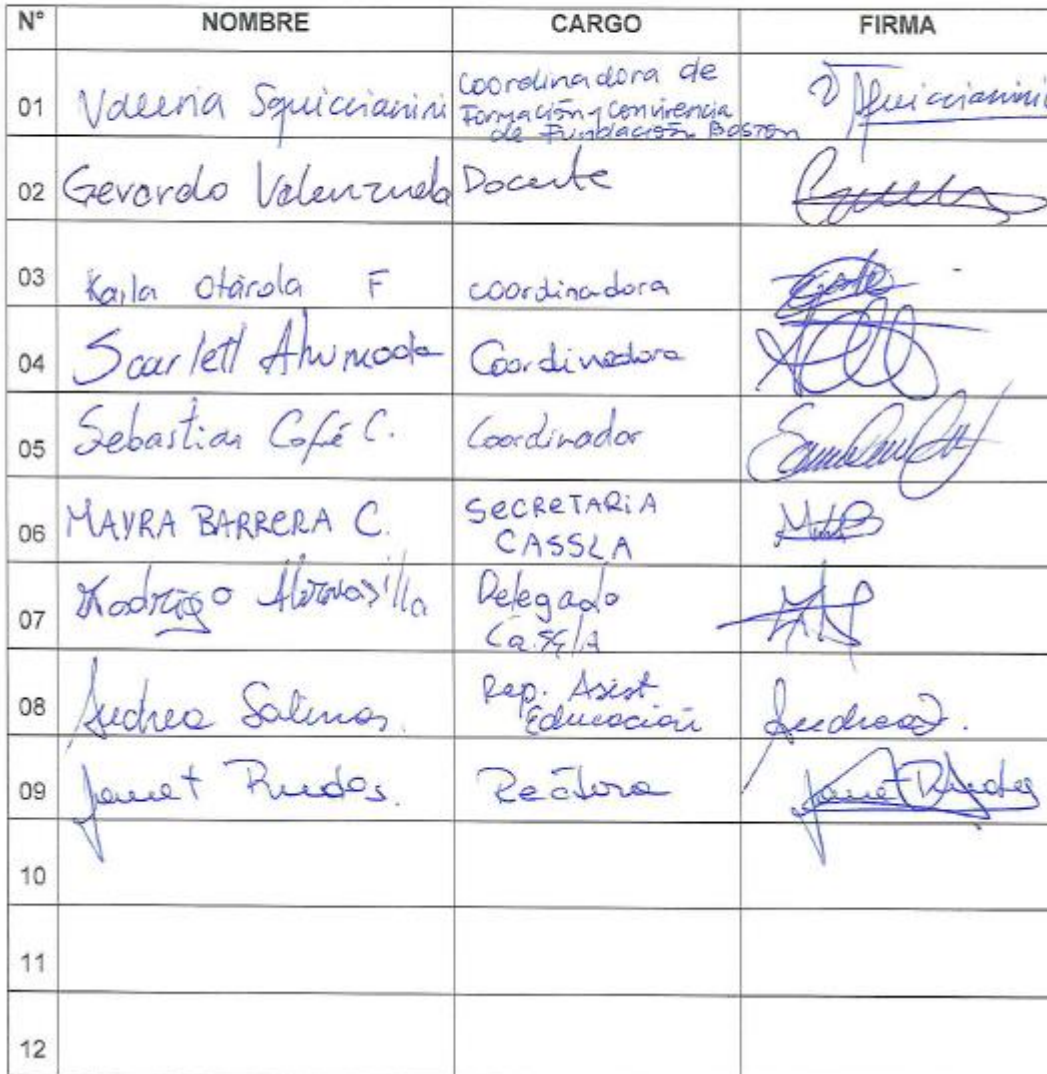 N° NOMBRE CARGO FIRMA
01 Valeria Squiccianini Coordinadora de
Formación y convivencia
de Fundación Boston
Squiccianini
02 Gerardo Valenzuela Docente
03 Karla Otárola F coordinadora
04 Scarlett Ahumada Coordinadora
05 Sebastian Cofré C. Coordinador
06 MAYRA BARRERA C. SECRETARIA
CASSLA
07 Rodrigo Delegado
08 Andrea Salinas. Rep. Asist
Educación
Andrea
09 Janet Rectora
Janet
10
11
12